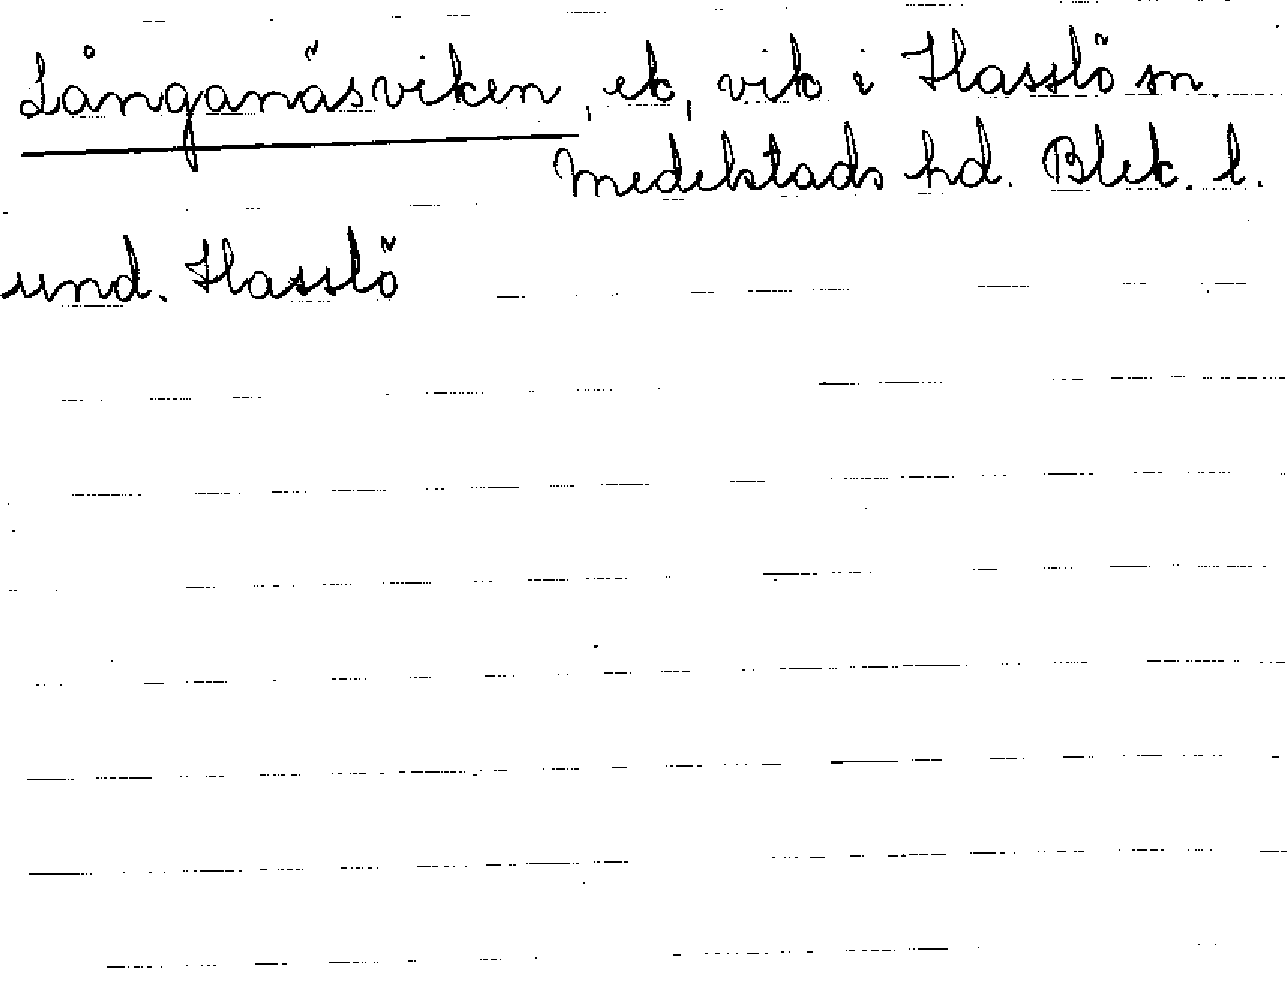 Långanäsviken, ek, vik i Hasslö sn.
Medelstads hd. Blek. l.
und. Hasslö